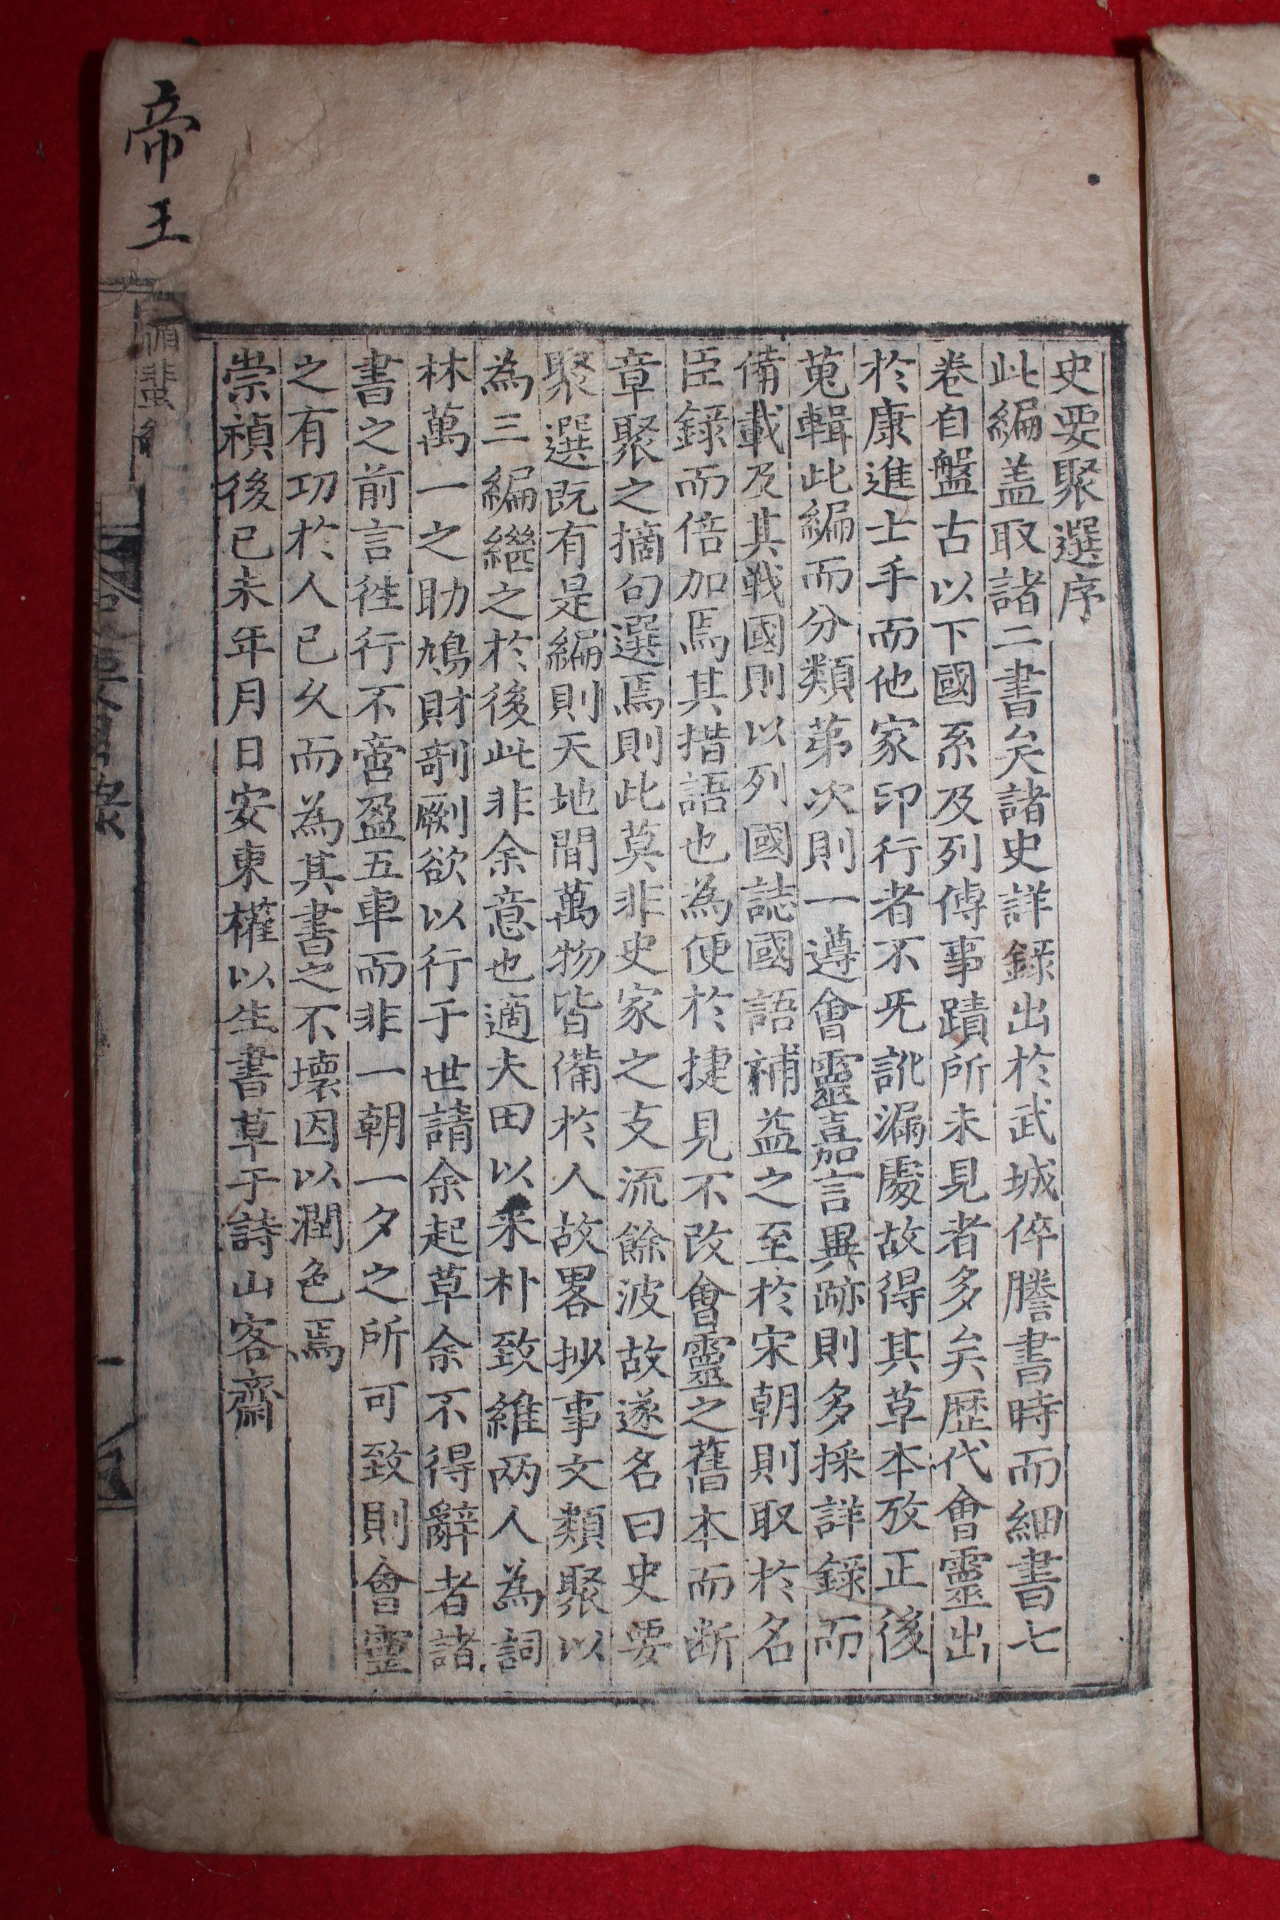 史要聚選序
此編盖取諸二書矣諸史詳錄出於武城倅謄書時而細書七
卷自盤古以下國系及列傳事蹟所未見者多矣歷代會靈出
於康進士手而他家印行者不旡訛漏處故得其草本攷正後
蒐輯此編而分類苐次則一遵會靈嘉言異跡則多採詳錄而
備載及其戰國則以列國誌國語補益之至於宋朝則取於名
臣錄而倍加焉其措語也為便於捷見不改會靈之舊本而断
章聚之摘句選焉則此莫非史家之支流餘波故遂名曰史要
聚選旣有是編則天地間萬物皆備於人故畧抄事文類聚以
為三編繼之於後此非余意也適夫田以采朴致維兩人為詞
林萬一之助鳩財剞劂欲以行于世請余起草余不得辭者諸
書之前言徃行不啻盈五車而非一朝一夕之所可致則會靈
之有功於人已久而為其書之不壞因以潤色焉
崇禎後己未年月日安東權以生書草于詩山客齋
帝王